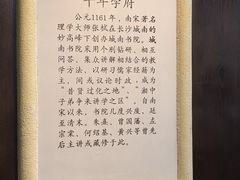 千年学府
公元1161年，南宋著名
理学大师张栻在长沙城南的
妙高峰下创办城南书院，相互
问答、集众讲解相结合的教
学方法，以研习儒家经籍为
主，间或议论时政，成
为"昔贤过化之地"、"湘中
子弟争来讲学之区"。自南
宋以来，书院几度兴废，延
至清末。朱熹、曾国藩、左
宗棠、何绍基、黄兴等曾先
后主讲或藏修于此。